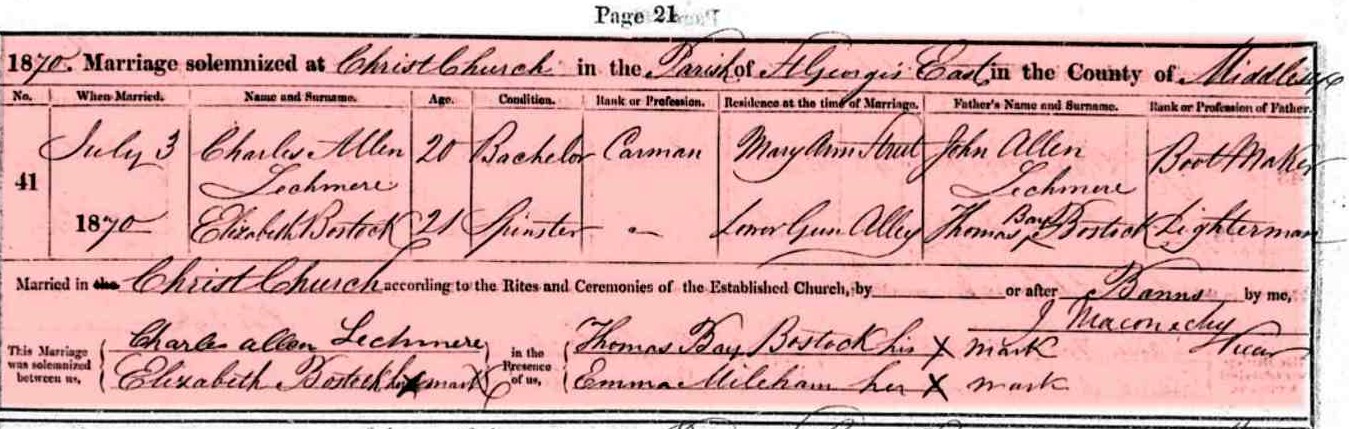 Page 21
1870. Marriage solemnized at Christ Church in the Parish of St George's East in the County of Middlesex
No. When Married. Name and Surname. Age. Condition. Rank or Profession. Residence at the time of Marriage. Father's Name and Surname. Rank or Profession of Father.
41 July 3 Charles Allen 20 Bachelor Carman Mary Ann Street John Allen Boot Maker
Lechmere Lechmere
1870 Elizabeth Bostock 21 Spinster - Lower Gun Alley Thomas Bay Bostock Lighterman
Married in the Christ Church according to the Rites and Ceremonies of the Established Church, by or after Banns by me,
J Maconechy
Vicar
This Marriage was solemnized between us, Charles allen Lechmere in the Presence of us, Thomas Bay Bostock his X mark
Elizabeth Bostock her X mark Emma Mileham her X mark